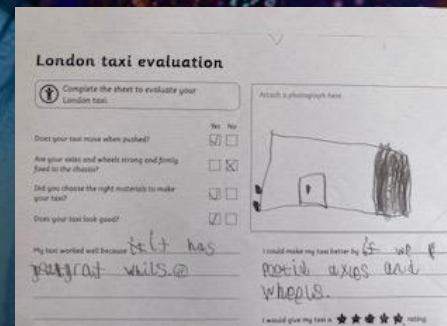 London taxi evaluation
Complete the sheet to evaluate your
London taxi.
Attach a photograph here.
Yes No
Does your taxi move when pushed?
Are your axles and wheels strong and firmly
fixed to the chassis?
Did you choose the right materials to make
your taxi?
Does your taxi look good?
My taxi worked well because it has
grat whils.
I could make my taxi better by if we
axles and
wheels.
I would give my taxi a rating.